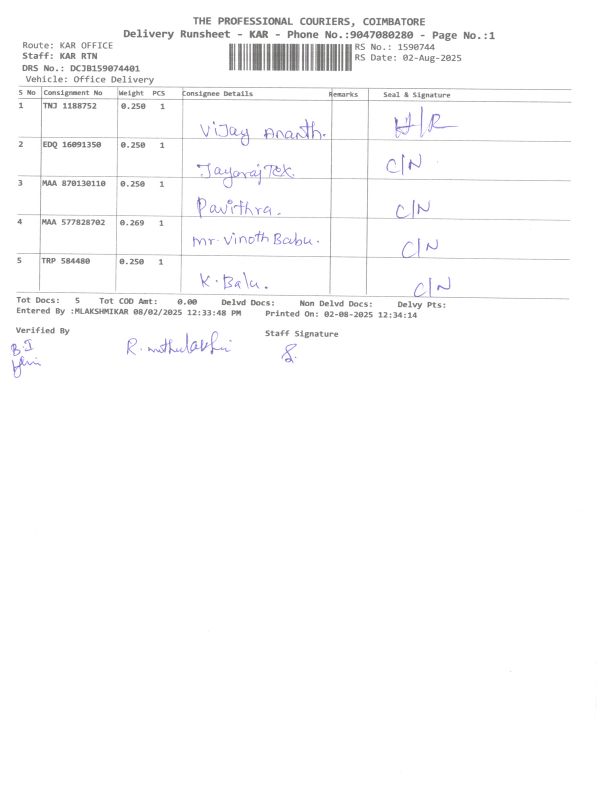 THE PROFESSIONAL COURIERS, COIMBATORE
Delivery Runsheet - KAR - Phone No.:9047080280 - Page No.:1
Route: KAR OFFICE RS No.: 1590744
Staff: KAR RTN RS Date: 02-Aug-2025
DRS No.: DCJB159074401
Vehicle: Office Delivery
S No Consignment No Weight PCS Consignee Details Remarks Seal & Signature
1 TNJ 1188752 0.250 1
Vijay Ananth. H/R
2 EDQ 16091350 0.250 1
Jayaraj Tex. C/N
3 MAA 870130110 0.250 1
Pavithra. C/N
4 MAA 577828702 0.269 1
mr. Vinoth Babu. C/N
5 TRP 584480 0.250 1
K. Balu. C/N
Tot Docs: 5 Tot COD Amt: 0.00 Delvd Docs: Non Delvd Docs: Delvy Pts:
Entered By :MLAKSHMIKAR 08/02/2025 12:33:48 PM Printed On: 02-08-2025 12:34:14
Verified By Staff Signature